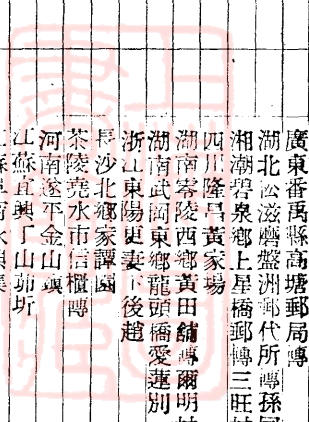 廣東番禺縣高塘郵局轉
湖北松滋磨盤洲郵代所轉孫
湘潭碧泉鄉上星橋郵轉三旺
四川隆昌黃家場
湖南零陵西鄉黃田舖轉爾明
湖南武岡東鄉龍頭橋愛蓮別
浙江東陽更妻下後趙
長沙北鄉家譚園
茶陵堯水市信櫃轉
河南遂平金山鎮
江蘇宜興丁山茆圻